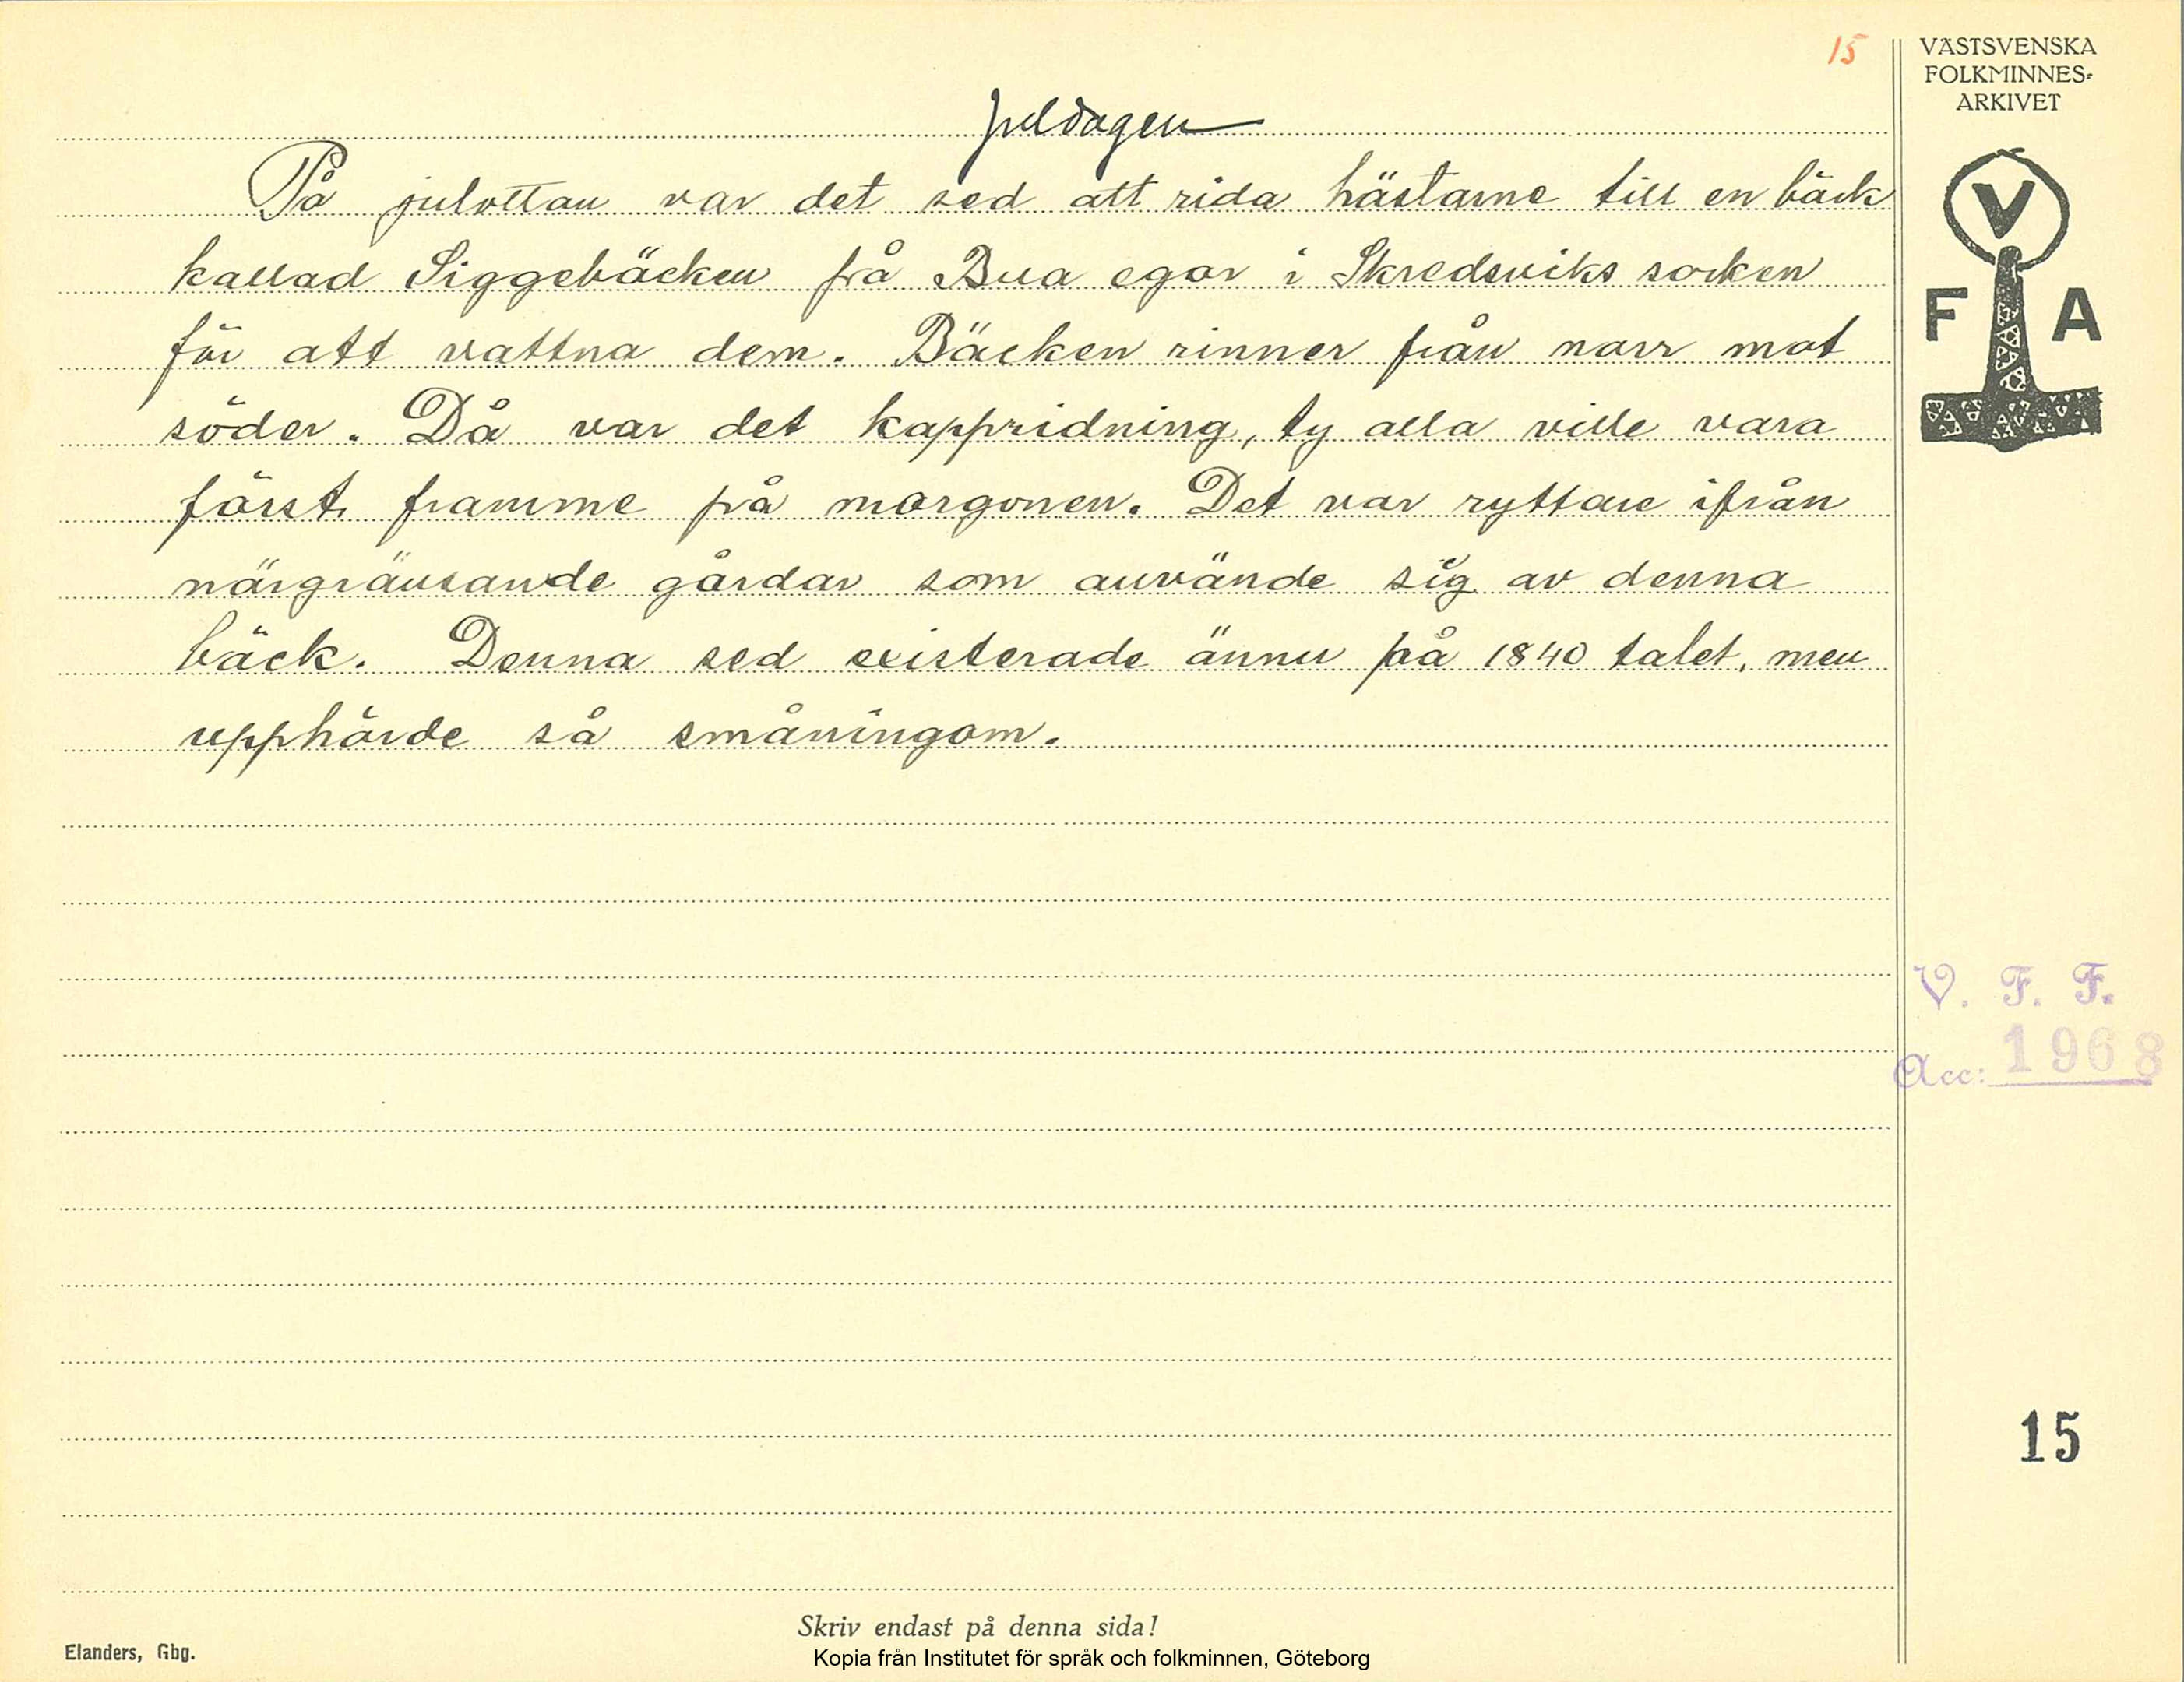 15
VÄSTSVENSKA
FOLKMINNES-
ARKIVET
Juldagen
På julottan var det sed att rida hästarne till en bäck
kallad Siggebäcken på Bua egor i Skredsviks socken
för att vattna dem. Bäcken rinner från norr mot
söder. Då var det kappridning, ty alla ville vara
först framme på morgonen. Det var ryttare ifrån
närgränsande gårdar som använde sig av denna
bäck. Denna sed existerade ännu på 1840 talet, men
upphörde så småningom.
V
F A
V. F. F.
Acc: 1968
15
Skriv endast på denna sida!
Elanders, Gbg.
Kopia från Institutet för språk och folkminnen, Göteborg